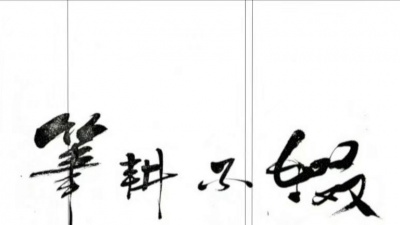 筆耕不輟